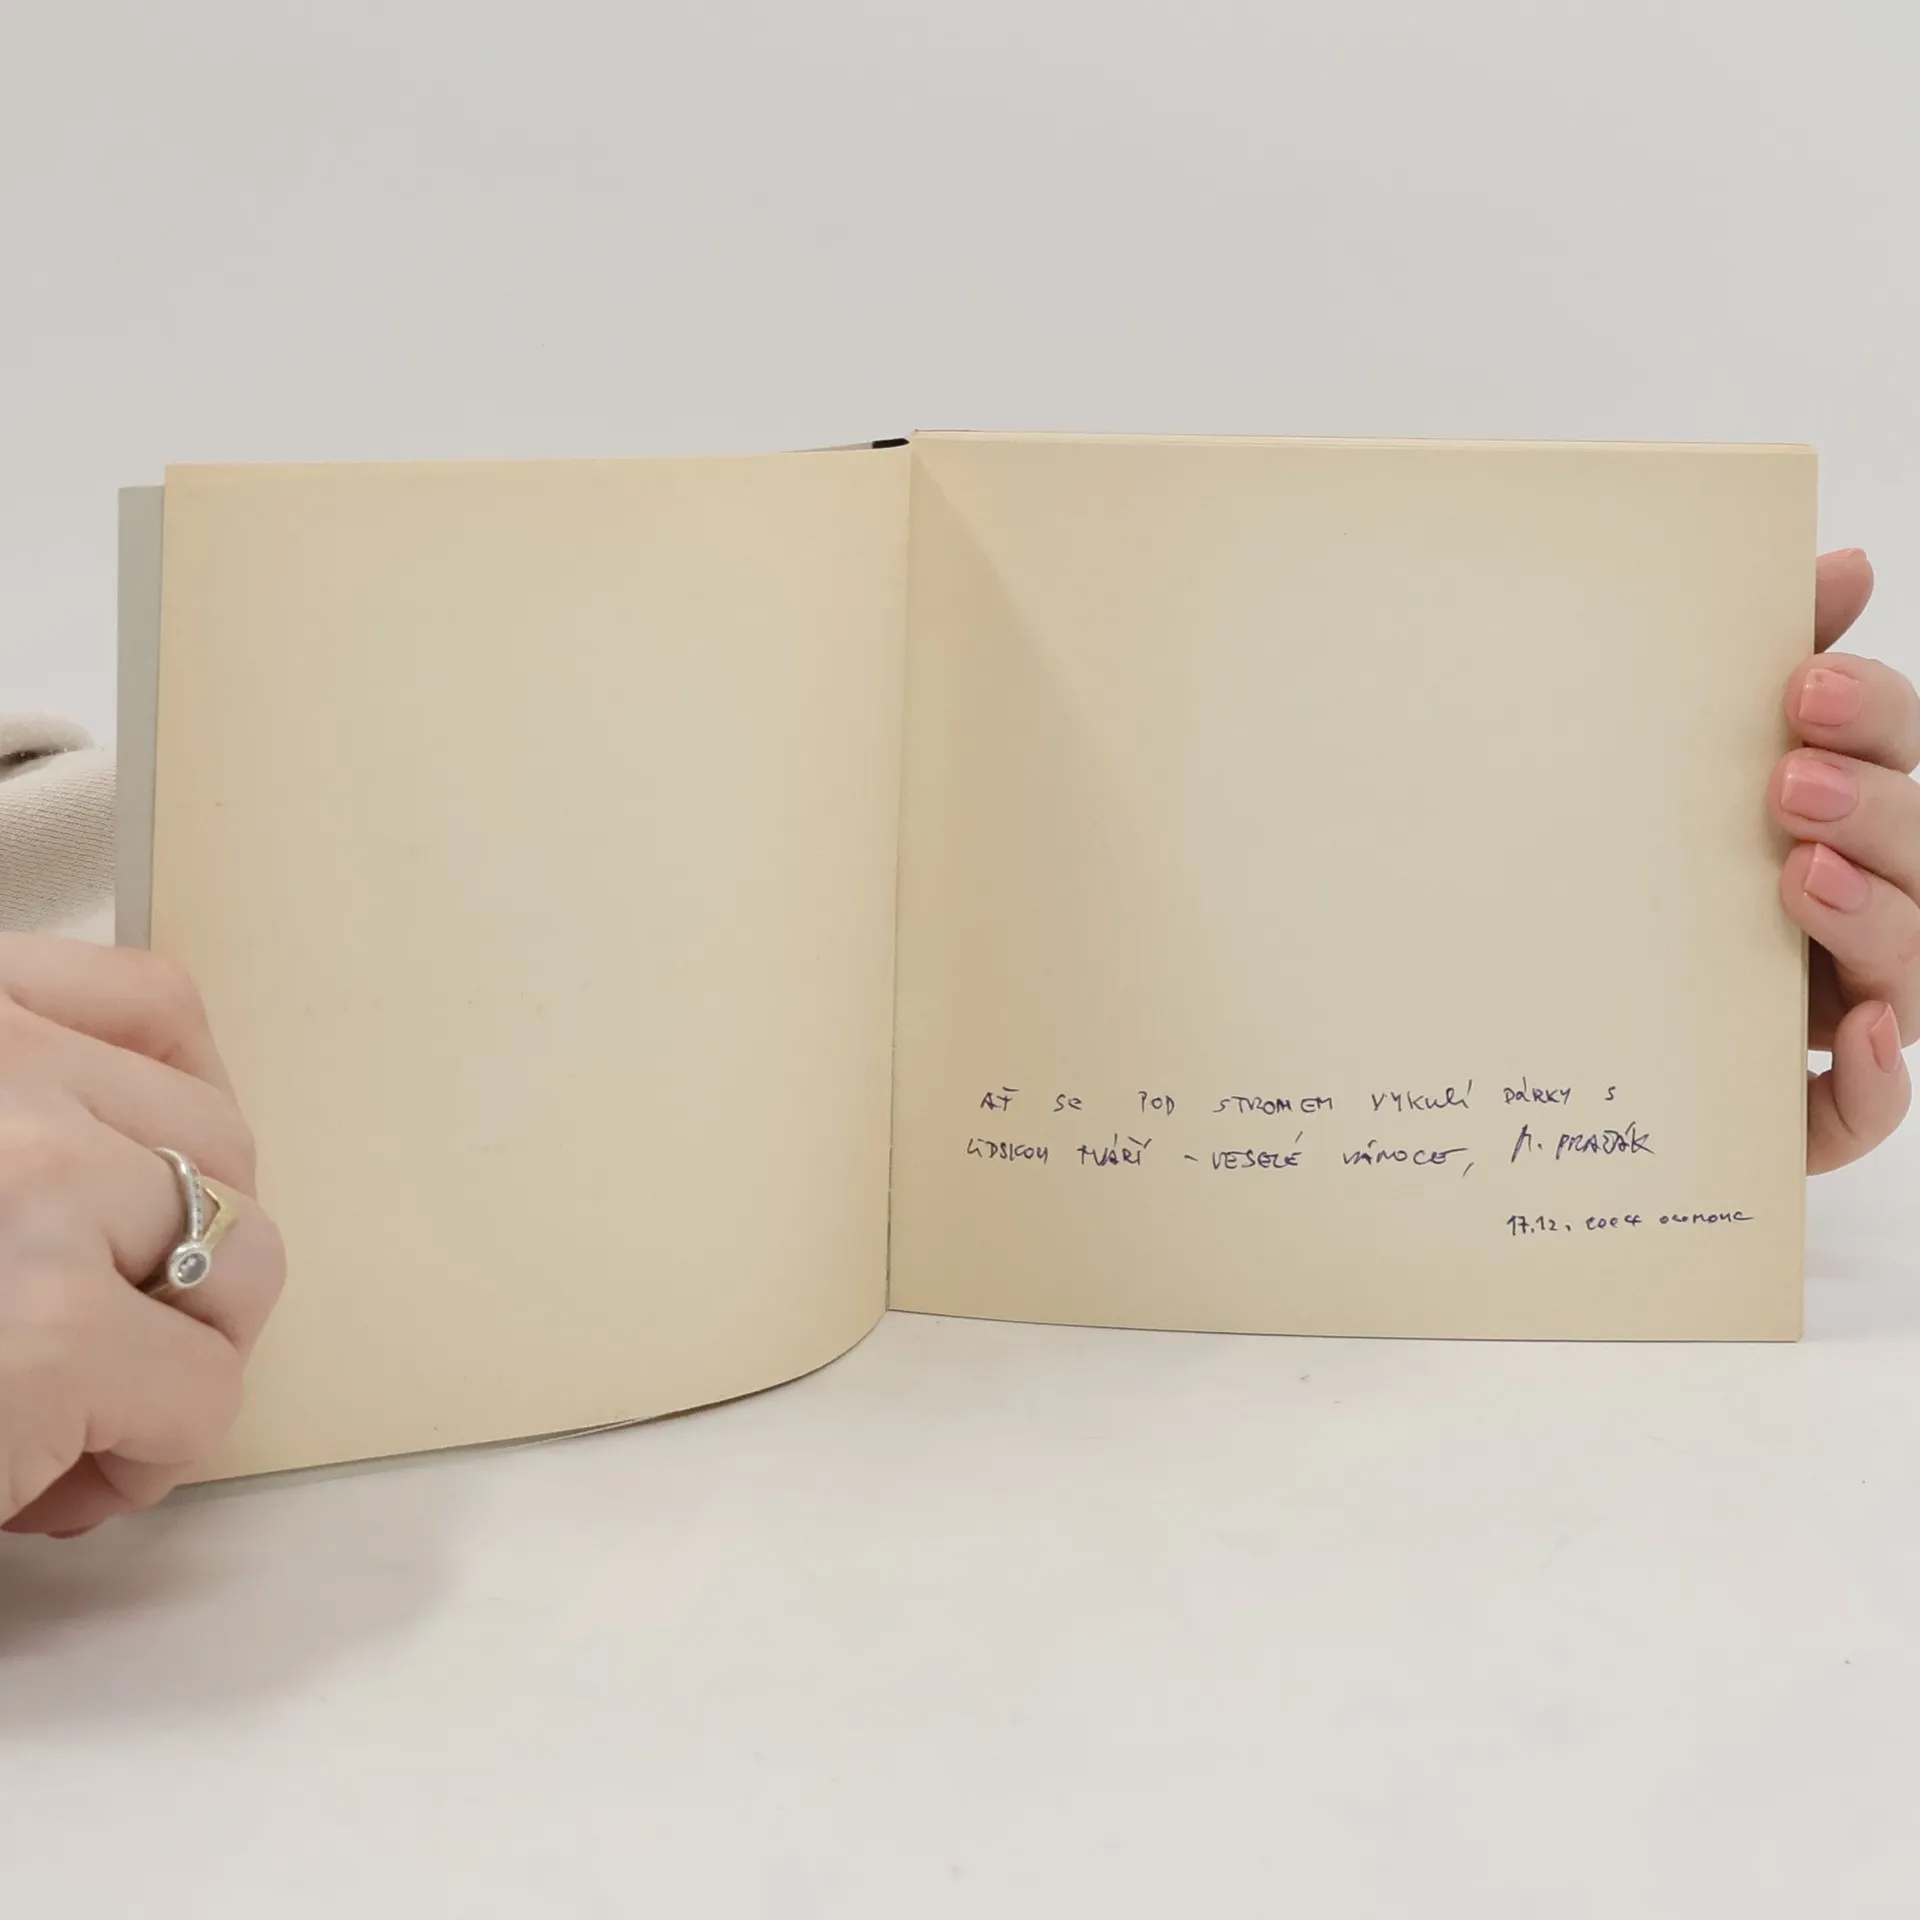 AŤ SE POD STROMEM VYKULÍ DÁRKY S
LIDSKOU TVÁŘÍ - VESELÉ VÁNOCE,
17.12. 2004 OLOMOUC